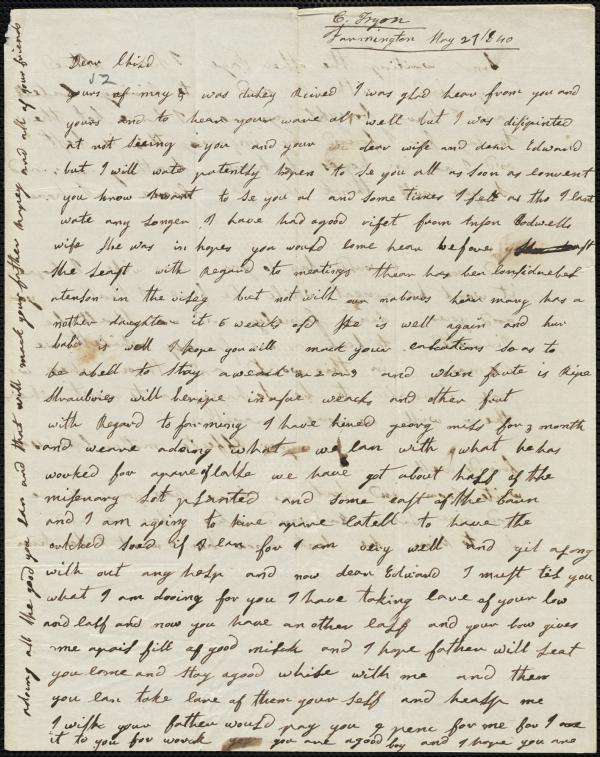 C. Tryon
Farmington May 27 1840
Dear Child
52
yours of may 5 was duley Reived I was glad hear from you and
yours and to hear your ware all well but I was dispinted
at not seeing you and your dear wife and dear Edward
but I will wate patently hopen to se you all as soon as convent
you know I want to se you al and some times I felt as tho I cant
wate any longer I have had a good viset from Bodwells
wife She was in hopes you would come hear before
the with Regard to meatings thear has ben considrebel
atenson in the vileg but not with our nabours how mary has a
nother daughter it 6 weaks old she is well again and hur
babe is well I hope you will mack your calcations so as to
be abell to stay a weack and when frute is Ripe
Strauberies will be ripe in a few weacks and other frut
with Regard to farming I have hired georg for 3 month
and weare adoing what we can with what he has
worked for a pare of calse we have got about half of the
misenary lot planted and some east of the barn
and I am agoing to hire a pare catell to have the
soad if I can for I am very well and git along
with out any help and now dear Edward I must tel you
what I am dooing for you I have taking care of your cow
and calf and now you have an other calf and your cow gives
me a pail fill of good milck and I hope father will leat
you come and stay a good while with me and then
you can take care of them your self and healp me
I wish your father would pay you 9 penc for me for I owe
it to you for worck you are a good boy and I hope you are
adoing all the good you can and that will mack your father hapey and all of your friends